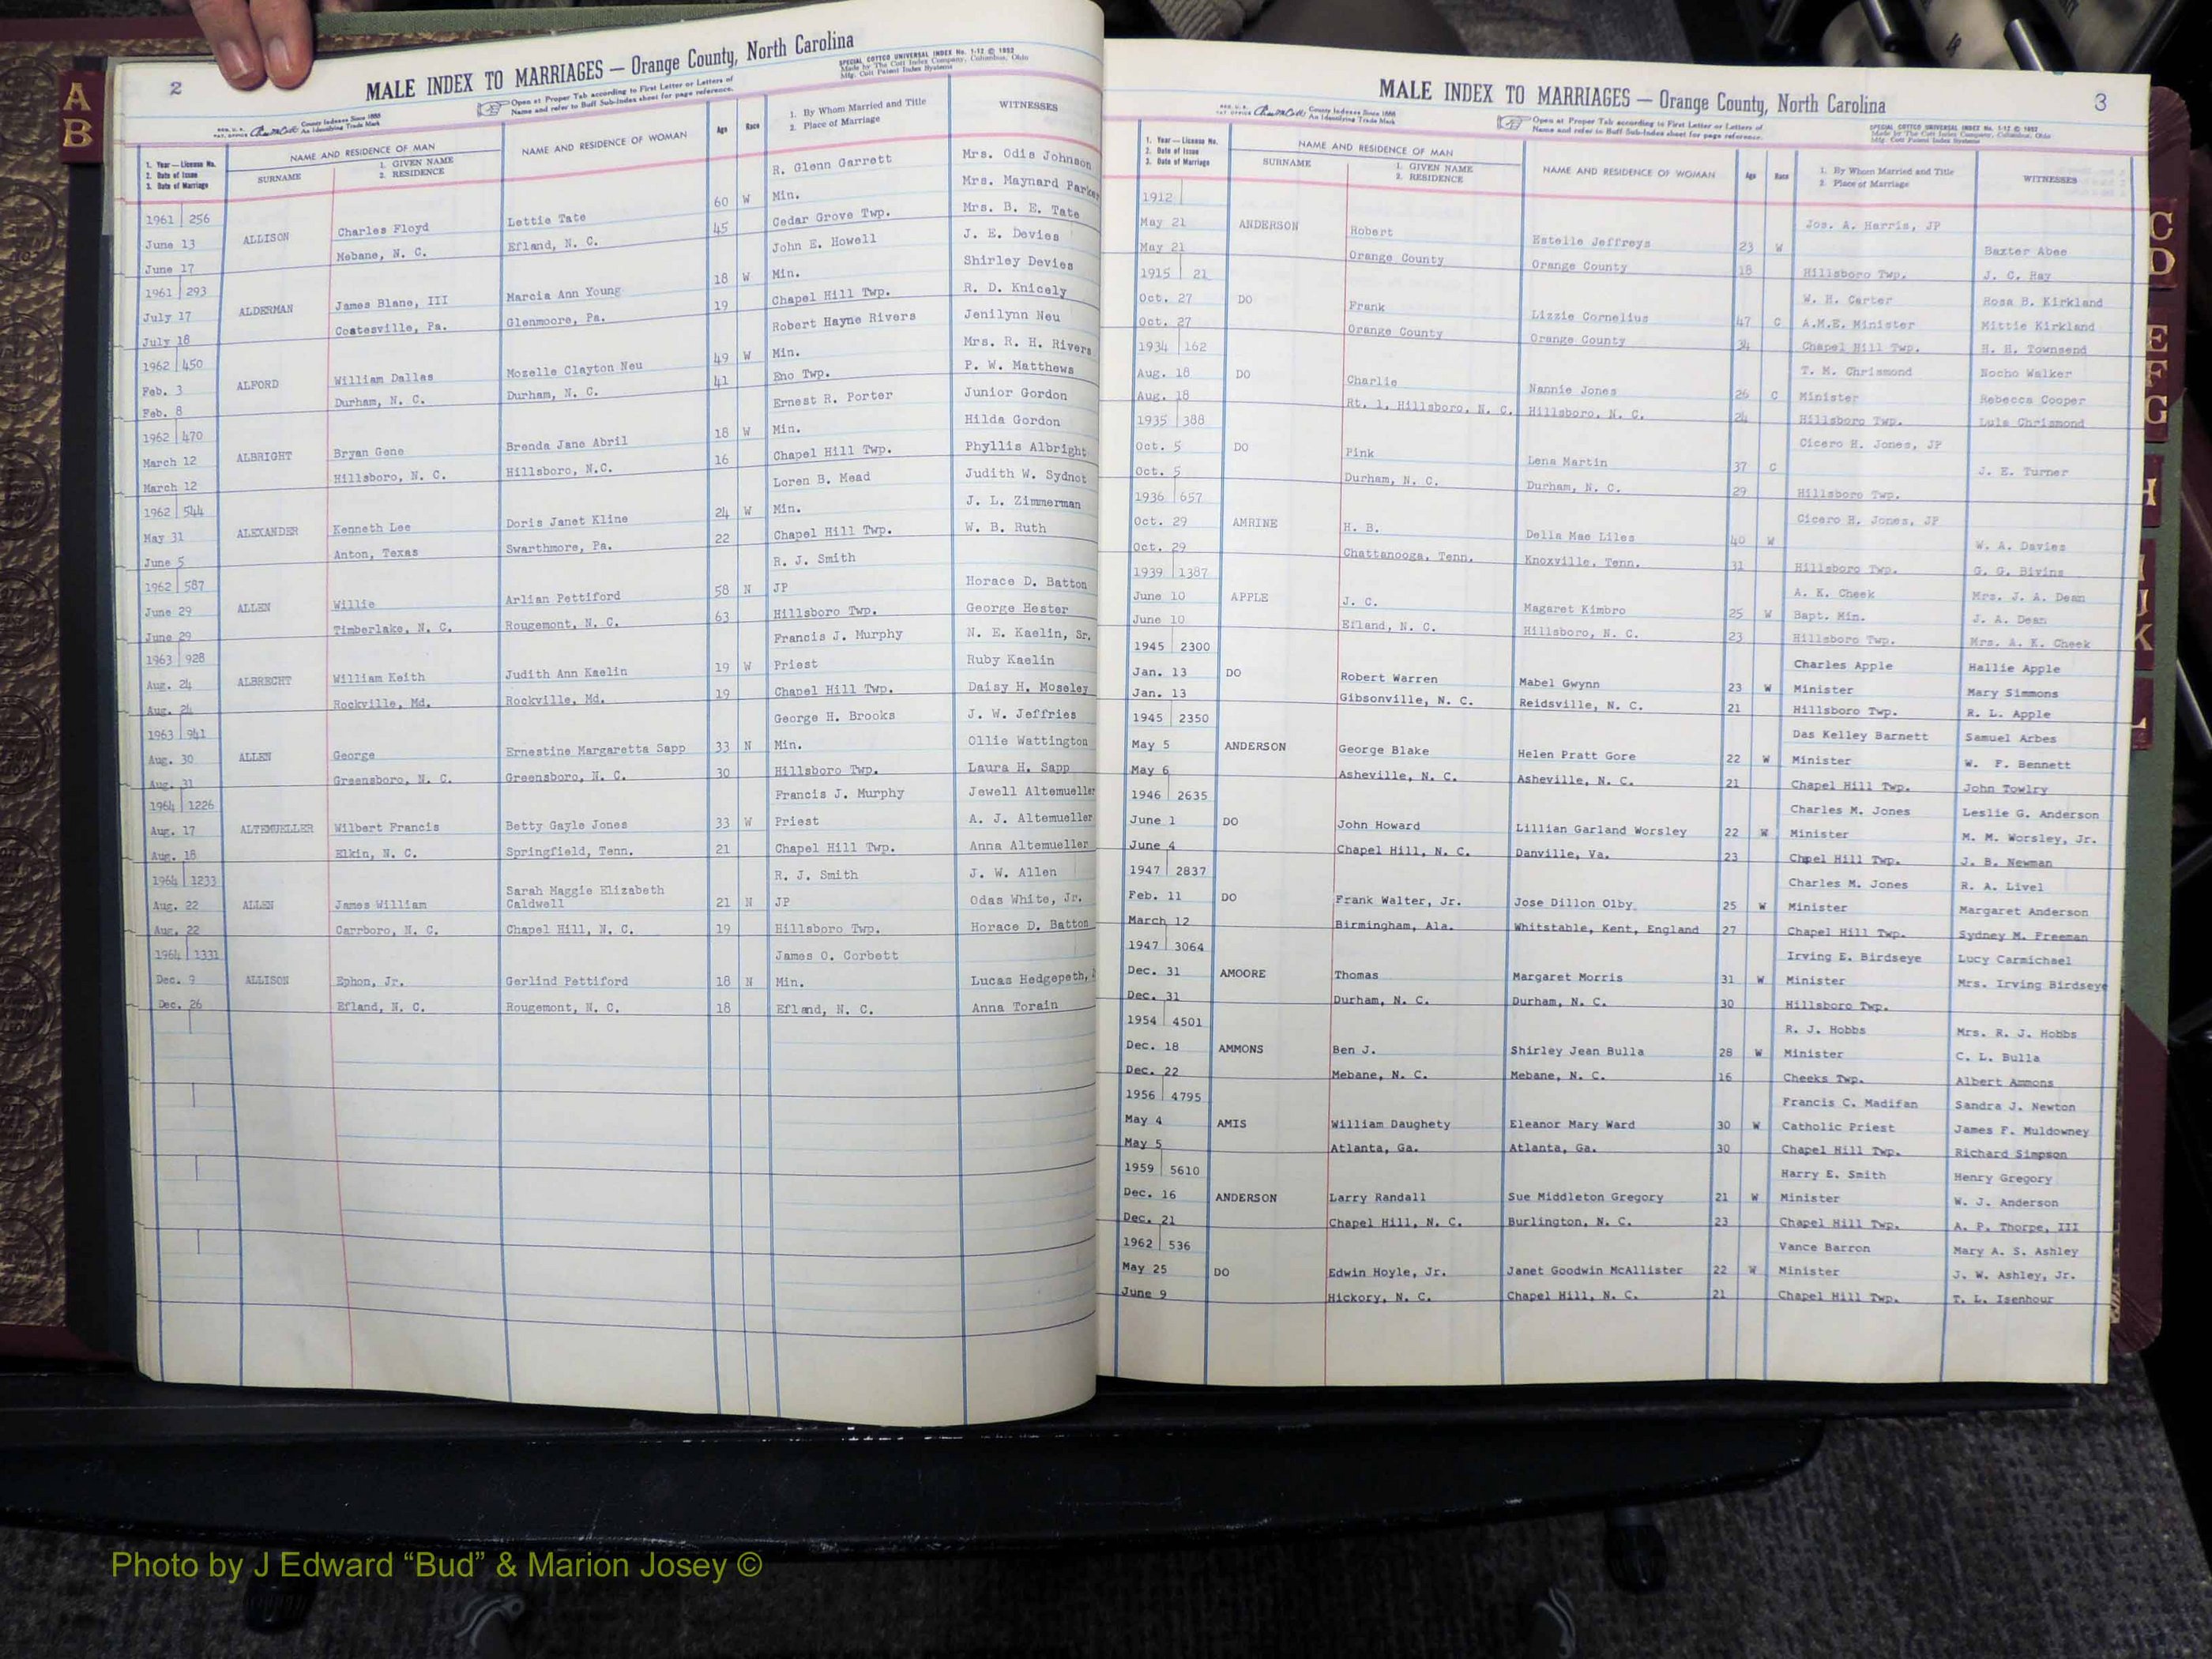 A
B
2
MALE INDEX TO MARRIAGES — Orange County, North Carolina
SPECIAL COTTCO UNIVERSAL INDEX No. 1-12 © 1952
Made by The Cott Index Company, Columbus, Ohio
Mfg. Cott Patent Index Systems
Open at Proper Tab according to First Letter or Letters of
Name and refer to Buff Sub-Index sheet for page reference.
County Indexes Since 1888
An Identifying Trade Mark
1. Year — License No.
2. Date of Issue
3. Date of Marriage
NAME AND RESIDENCE OF MAN
SURNAME
1. GIVEN NAME
2. RESIDENCE
NAME AND RESIDENCE OF WOMAN
Age
Race
1. By Whom Married and Title
2. Place of Marriage
WITNESSES
R. Glenn Garrett Mrs. Odis Johnson
1961 256 60 W Min. Mrs. Maynard Parker
June 13 ALLISON Charles Floyd Lettie Tate 45 Cedar Grove Twp. Mrs. B. E. Tate
June 17 Mebane, N. C. Efland, N. C. John E. Howell J. E. Davies
1961 293 18 W Min. Shirley Davies
July 17 ALDERMAN James Blane, III Marcia Ann Young 19 Chapel Hill Twp. R. D. Knicely
July 18 Coatesville, Pa. Glenmoore, Pa. Robert Hayne Rivers Jenilynn Neu
1962 450 49 W Min. Mrs. R. H. Rivers
Feb. 3 ALFORD William Dallas Mozelle Clayton Neu 41 Eno Twp. P. W. Matthews
Feb. 8 Durham, N. C. Durham, N. C. Ernest R. Porter Junior Gordon
1962 470 18 W Min. Hilda Gordon
March 12 ALBRIGHT Bryan Gene Brenda Jane Abril 16 Chapel Hill Twp. Phyllis Albright
March 12 Hillsboro, N. C. Hillsboro, N.C. Loren B. Mead Judith W. Sydnot
1962 544 24 W Min. J. L. Zimmerman
May 31 ALEXANDER Kenneth Lee Doris Janet Kline 22 Chapel Hill Twp. W. B. Ruth
June 5 Anton, Texas Swarthmore, Pa. R. J. Smith
1962 587 58 N JP Horace D. Batton
June 29 ALLEN Willie Arlian Pettiford 63 Hillsboro Twp. George Hester
June 29 Timberlake, N. C. Rougemont, N. C. Francis J. Murphy N. E. Kaelin, Sr.
1963 928 19 W Priest Ruby Kaelin
Aug. 24 ALBRECHT William Keith Judith Ann Kaelin 19 Chapel Hill Twp. Daisy H. Moseley
Aug. 24 Rockville, Md. Rockville, Md. George H. Brooks J. W. Jeffries
1963 941 33 N Min. Ollie Wattington
Aug. 30 ALLEN George Ernestine Margaretta Sapp 30 Hillsboro Twp. Laura H. Sapp
Aug. 31 Greensboro, N. C. Greensboro, N. C. Francis J. Murphy Jewell Altemueller
1964 1226 33 W Priest A. J. Altemueller
Aug. 17 ALTEMUELLER Wilbert Francis Betty Gayle Jones 21 Chapel Hill Twp. Anna Altemueller
Aug. 18 Elkin, N. C. Springfield, Tenn. R. J. Smith J. W. Allen
1964 1233 Sarah Maggie Elizabeth
Aug. 22 ALLEN James William Caldwell 21 N JP Odas White, Jr.
Aug. 22 Carrboro, N. C. Chapel Hill, N. C. 19 Hillsboro Twp. Horace D. Batton
1964 1331 James O. Corbett
Dec. 9 ALLISON Ephon, Jr. Gerlind Pettiford 18 N Min. Lucas Hedgepeth,
Dec. 26 Efland, N. C. Rougemont, N. C. 18 Efland, N. C. Anna Torain
MALE INDEX TO MARRIAGES — Orange County, North Carolina
3
County Indexes Since 1888
An Identifying Trade Mark
Open at Proper Tab according to First Letter or Letters of
Name and refer to Buff Sub-Index sheet for page reference.
SPECIAL COTTCO UNIVERSAL INDEX No. 1-12 © 1952
Made by The Cott Index Company, Columbus, Ohio
Mfg. Cott Patent Index Systems
1. Year — License No.
2. Date of Issue
3. Date of Marriage
NAME AND RESIDENCE OF MAN
SURNAME
1. GIVEN NAME
2. RESIDENCE
NAME AND RESIDENCE OF WOMAN
Age
Race
1. By Whom Married and Title
2. Place of Marriage
WITNESSES
1912 Jos. A. Harris, JP
May 21 ANDERSON Robert Estelle Jeffreys 23 W Baxter Abee
May 21 Orange County Orange County 18 Hillsboro Twp. J. C. Ray
1915 21 W. H. Carter Rosa B. Kirkland
Oct. 27 DO Frank Lizzie Cornelius 47 C A.M.E. Minister Mittie Kirkland
Oct. 27 Orange County Orange County 34 Chapel Hill Twp. H. H. Townsend
1934 162 T. M. Chrismond Nocho Walker
Aug. 18 DO Charlie Nannie Jones 26 C Minister Rebecca Cooper
Aug. 18 Rt. 1, Hillsboro, N. C. Hillsboro, N. C. 24 Hillsboro Twp. Lula Chrismond
1935 388 Cicero H. Jones, JP
Oct. 5 DO Pink Lena Martin 37 C J. E. Turner
Oct. 5 Durham, N. C. Durham, N. C. 29 Hillsboro Twp.
1936 657 Cicero H. Jones, JP
Oct. 29 AMRINE H. B. Della Mae Liles 40 W W. A. Davies
Oct. 29 Chattanooga, Tenn. Knoxville, Tenn. 31 Hillsboro Twp. G. G. Bivins
1939 1387 A. K. Cheek Mrs. J. A. Dean
June 10 APPLE J. C. Magaret Kimbro 25 W Bapt. Min. J. A. Dean
June 10 Efland, N. C. Hillsboro, N. C. 23 Hillsboro Twp. Mrs. A. K. Cheek
1945 2300 Charles Apple Hallie Apple
Jan. 13 DO Robert Warren Mabel Gwynn 23 W Minister Mary Simmons
Jan. 13 Gibsonville, N. C. Reidsville, N. C. 21 Hillsboro Twp. R. L. Apple
1945 2350 Das Kelley Barnett Samuel Arbes
May 5 ANDERSON George Blake Helen Pratt Gore 22 W Minister W. F. Bennett
May 6 Asheville, N. C. Asheville, N. C. 21 Chapel Hill Twp. John Towlry
1946 2635 Charles M. Jones Leslie G. Anderson
June 1 DO John Howard Lillian Garland Worsley 22 W Minister M. M. Worsley, Jr.
June 4 Chapel Hill, N. C. Danville, Va. 23 Chpel Hill Twp. J. B. Newman
1947 2837 Charles M. Jones R. A. Livel
Feb. 11 DO Frank Walter, Jr. Jose Dillon Olby 25 W Minister Margaret Anderson
March 12 Birmingham, Ala. Whitstable, Kent, England 27 Chapel Hill Twp. Sydney M. Freeman
1947 3064 Irving E. Birdseye Lucy Carmichael
Dec. 31 AMOORE Thomas Margaret Morris 31 W Minister Mrs. Irving Birdseye
Dec. 31 Durham, N. C. Durham, N. C. 30 Hillsboro Twp.
1954 4501 R. J. Hobbs Mrs. R. J. Hobbs
Dec. 18 AMMONS Ben J. Shirley Jean Bulla 28 W Minister C. L. Bulla
Dec. 22 Mebane, N. C. Mebane, N. C. 16 Cheeks Twp. Albert Ammons
1956 4795 Francis C. Madifan Sandra J. Newton
May 4 AMIS William Daughety Eleanor Mary Ward 30 W Catholic Priest James F. Muldowney
May 5 Atlanta, Ga. Atlanta, Ga. 30 Chapel Hill Twp. Richard Simpson
1959 5610 Harry E. Smith Henry Gregory
Dec. 16 ANDERSON Larry Randall Sue Middleton Gregory 21 W Minister W. J. Anderson
Dec. 21 Chapel Hill, N. C. Burlington, N. C. 23 Chapel Hill Twp. A. P. Thorpe, III
1962 536 Vance Barron Mary A. S. Ashley
May 25 DO Edwin Hoyle, Jr. Janet Goodwin McAllister 22 W Minister J. W. Ashley, Jr.
June 9 Hickory, N. C. Chapel Hill, N. C. 21 Chapel Hill Twp. T. L. Isenhour
C
D
E
F
G
H
I
J
K
L
Photo by J Edward “Bud” & Marion Josey ©